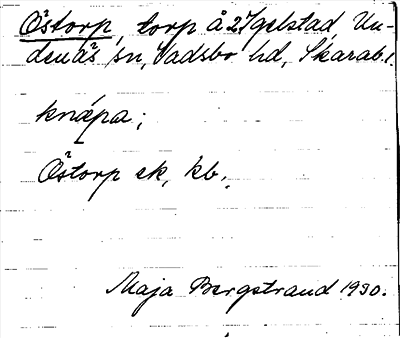 Östorp, torp å 2 Igelstad, Un-
denäs sn, Vadsbo hd, Skarab. l.
knäpa;
Östorp ek, kb.
Maja Bergstrand 1930.